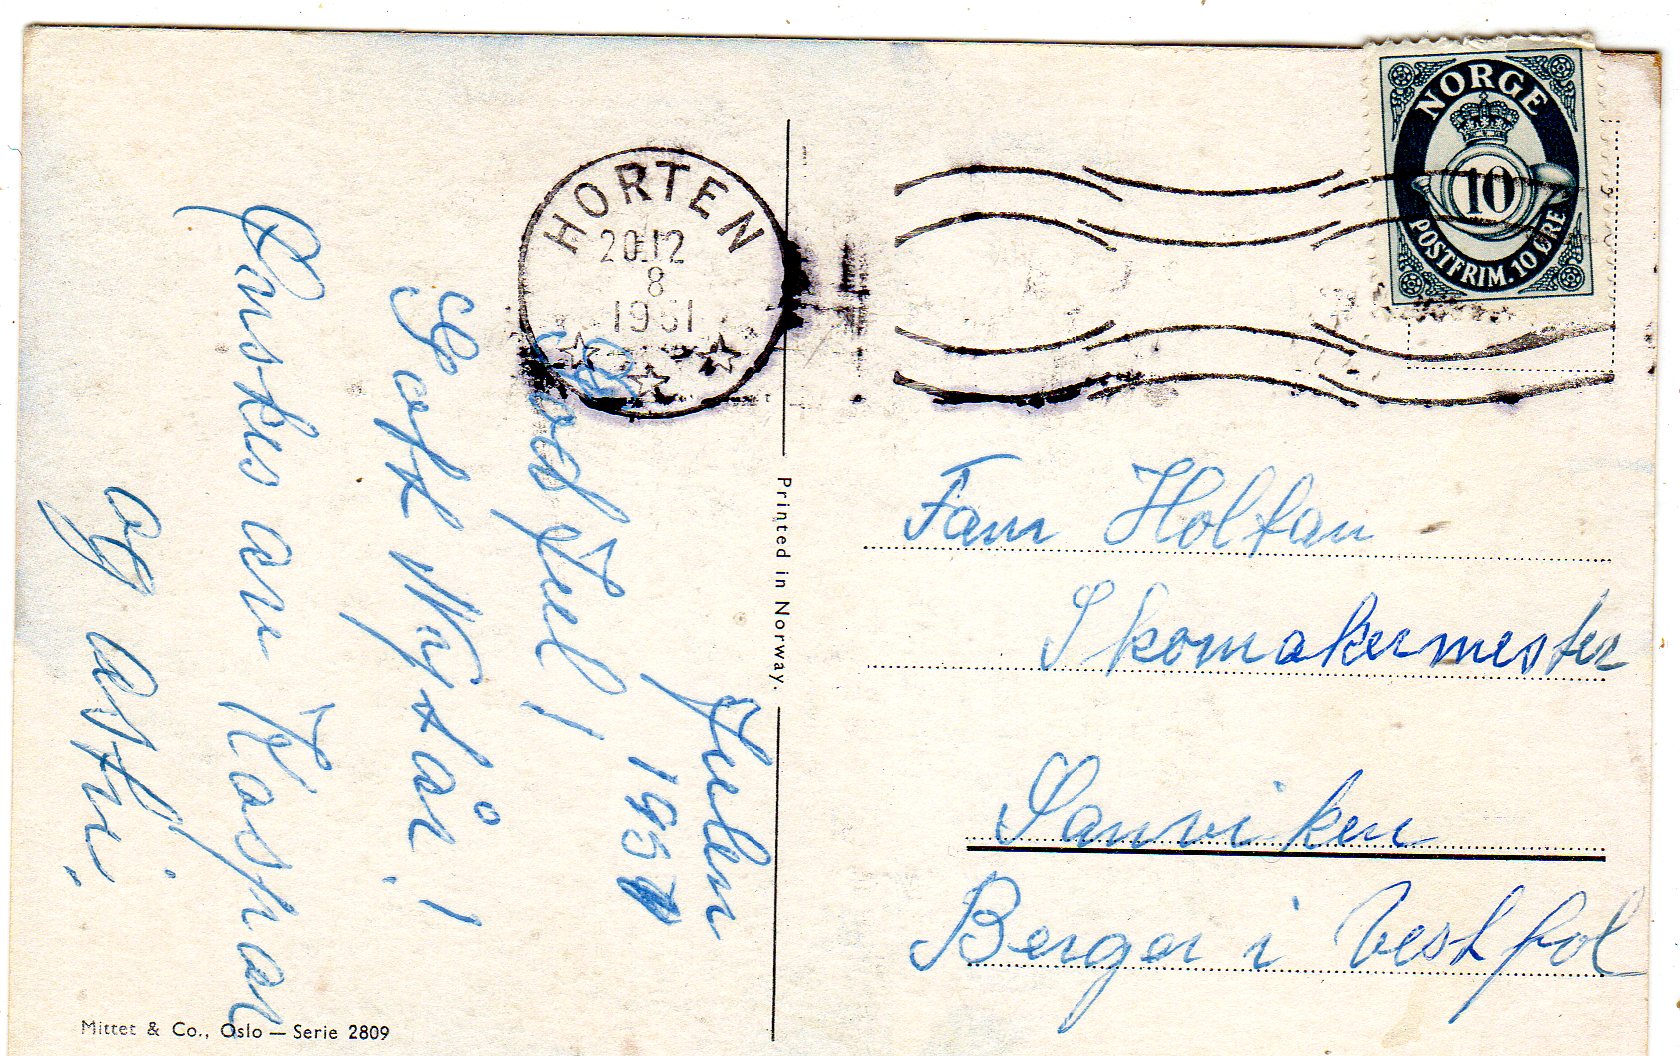 HORTEN
20.12
8
1951
NORGE
10
POSTFRIM. 10 ØRE
Julen
1951
God Jul!
Godt Nyttår!
Ønskes av Kaspar
og Astri.
Printed in Norway.
Fam Holtan
Skomakermester
Sanviken
Berger i Vestfol
Mittet & Co., Oslo — Serie 2809